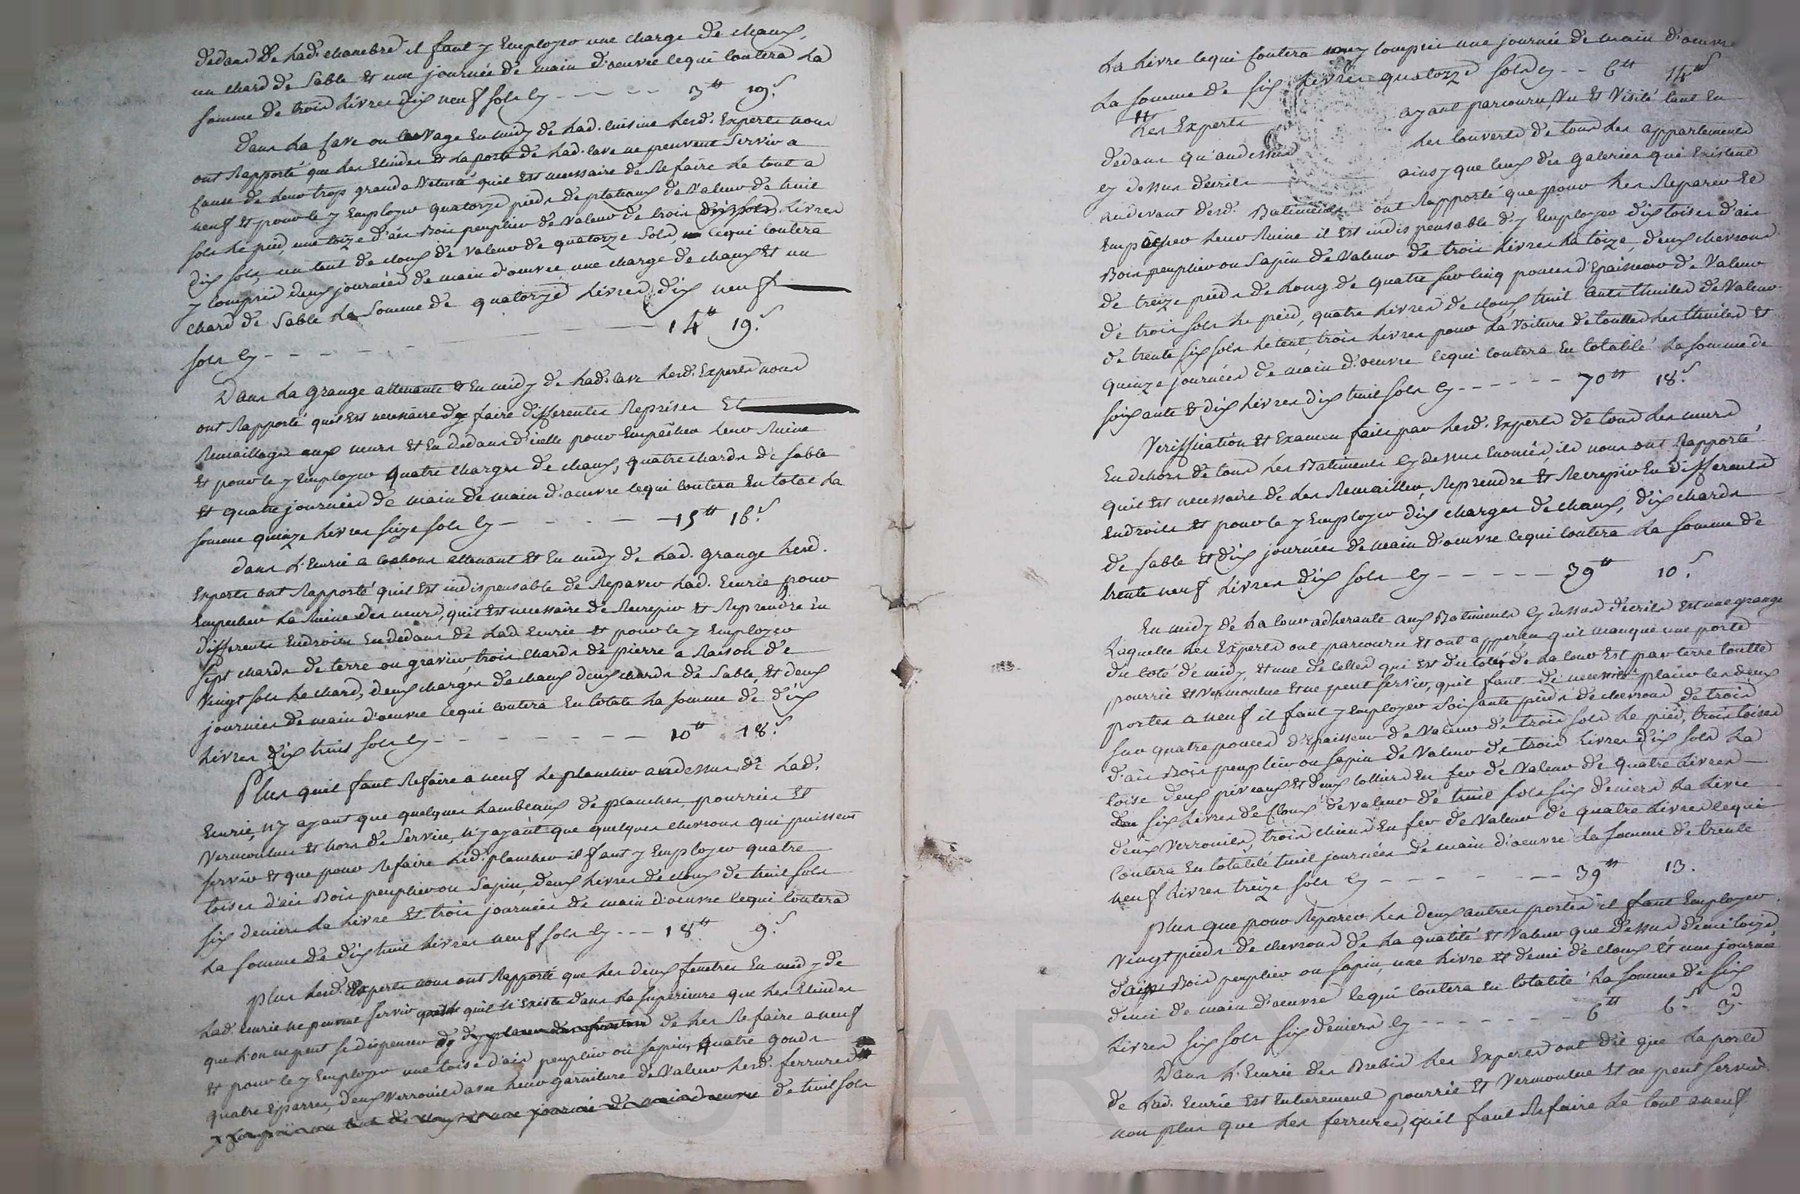 dedans de lad. chambre il faut y Employer une charge de chaux,
un chard de Sable Et une journée de main d'oeuvre lequi Coutera La
Somme de trois Livres dix neuf sols Cy - - - - - 3tt 19s
Dans La Cave ou Cuvage En midy de Lad. Cuisine Lesd. Experts nous
ont Rapporté que Les Etrides Et La porte de Lad. Cave ne peuvent Servir a
Cause de Leur trop grande Vetusté quil Est necessaire de Refaire Le tout a
neuf Et pour Ce y Employer quatorze pieds de plateaux de Valeur de huit
sols Le pied, une toize d'ais Bois peuplier de Valeur de trois Livres
dix sols, un Cent de Cloux de Valeur de quatorze Sols Cequi Coutera
y Compris deux journées de main d'oeuvre une charge de chaux Et un
chard de Sable La Somme de quatorze Livres dix neuf
sols Cy - - - - - - - - - 14tt 19s
Dans La grange attenante Et En midy de Lad. Cave Lesd. Experts nous
ont Rapporté quil Est necessaire dy faire differentes Reprises Et
Remaillages aux murs Et En dedans d'icelle pour Empêcher Leur Ruine
Et pour Ce y Employer quatre charges de chaux, quatre chards de Sable
Et quatre journées de main de main d'oeuvre Cequi Coutera En total La
somme quinze Livres Seize sols Cy - - - - - 15tt 16s
dans L'Ecurie a Cochons attenant Et En midy de Lad. grange Lesd.
Experts ont Rapporté quil Est indispensable de Reparer Lad. Ecurie pour
Empecher La Ruine des murs, quil Est necessaire de Recrepir Et Reprendre En
differents Endroits En dedans de Lad. Ecurie Et pour Ce y Employer
Sept chards de terre ou gravier, trois chards de pierre a Raison de
Vingt sols Le chard, deux charges de chaux deux chards de Sable, Et deux
journées de main d'oeuvre Cequi Coutera En totale La Somme de dix
Livres dix huit sols Cy - - - - - - - 10tt 18s
Plus quil faut Refaire a neuf Le plancher au dessus de Lad.
Ecurie, n'y ayant que quelques Lambeaux de planches pourries Et
Vermoulues Et hors de Service, n'y ayant que quelques Chevrons qui puissent
servir Et que pour Refaire Led. plancher il faut y Employer quatre
toises d'ais Bois peuplier ou Sapin, deux Livres de Cloux de huit sols
six deniers La Livre Et trois journées de main d'oeuvre Cequi Coutera
La Somme de dix huit Livres neuf sols Cy - - - 18tt 9s
Plus Lesd. Experts nous ont Rapporté que Les deux fenetres En midy de
Lad. Ecurie ne peuvent Servir quil n'Existe dans La Superieure que Les Etrides
que L'on ne peut se dispenser de Les Refaire a neuf
Et pour Ce y Employer une toise d'ais peuplier ou Sapin, quatre gonds
quatre Eparres, deux Verrouils avec Leur garniture de Valeur Lesd. ferrures
y Compris un Cent de Cloux Et une journée de main d'oeuvre de huit sols
La Livre Cequi Coutera y Compris une journée de main d'oeuvre
La Somme de six Livres quatorze sols Cy - - 6tt 14s
Les Experts ayant parcouru Vu Et Visité tant En
dedans qu'au dessus Les Couverts de tous Les appartements
Cy dessus décrits ainsy que Ceux des galeries qui Existent
au devant desd. Batiments ont Rapporté que pour Les Reparer Et
Empêcher Leur Ruine il Est indispensable d'y Employer dix toises d'ais
Bois peuplier ou Sapin de Valeur de trois Livres La toize, deux chevrons
de treize pieds de Long de quatre sur Cinq pouces d'Epaisseur de Valeur
de trois sols Le pied, quatre Livres de Cloux huit Cents thuiles de Valeur
de trente six sols Le Cent, trois Livres pour La Voiture de touttes Les thuiles Et
quinze journées de main d'oeuvre Cequi Coutera En totalité La Somme de
soixante Et dix Livres dix huit sols Cy - - - - - 70tt 18s
Veriffication Et Examen faits par Lesd. Experts de tous Les murs
En dehors de tous Les Batiments Cy dessus Enoncés, ils nous ont Rapporté
quil Est necessaire de Les Remailler, Reprendre Et Recrepir En differents
Endroits Et pour Ce y Employer dix charges de chaux, dix chards
de Sable Et dix journées de main d'oeuvre Cequi Coutera La Somme de
trente neuf Livres dix sols Cy - - - - - 39tt 10s
En midy de La Cour adherante aux Batiments Cy dessus décrits Est une grange
Laquelle Les Experts ont parcouru Et ont apperçu qu'il manque une porte
du Coté de midy Et une de Celles qui Est du Coté de La Cour Est par terre toutte
pourrie Et Vermoulue Et ne peut Servir, quil faut de necessité placer Les deux
portes a neuf il faut y Employer Soixante pieds de Chevrons de trois
sur quatre pouces d'Epaisseur de Valeur de trois sols Le pied, trois toises
d'ais Bois peuplier ou sapin de Valeur de trois Livres dix sols La
toise deux piveaux Et deux Colliers En fer de Valeur de quatre Livres
six Livres de Cloux de Valeur de huit sols six deniers La Livre
deux Verrouils, trois chiens En fer de Valeur de quatre Livres Cequi
Coutera En totalité huit journées de main d'oeuvre La Somme de trente
neuf Livres treize sols Cy - - - - - - 39tt 13.
Plus que pour Reparer Les deux autres portes il faut Employer
Vingt pieds de Chevrons de La qualité Et Valeur que dessus demi toize
d'ais Bois peuplier ou Sapin, une Livre Et demi de Cloux Et une journée
demi de main d'oeuvre Cequi Coutera En totalité La Somme de Six
Livres six sols six deniers Cy - - - - - - 6tt 6s 3d
Dans L'Ecurie des Brebis Les Experts ont dit que La porte
de Lad. Ecurie Est Entierement pourrie Et Vermoulue Et ne peut Servir
non plus que Les ferrures, quil faut Refaire Le tout a neuf